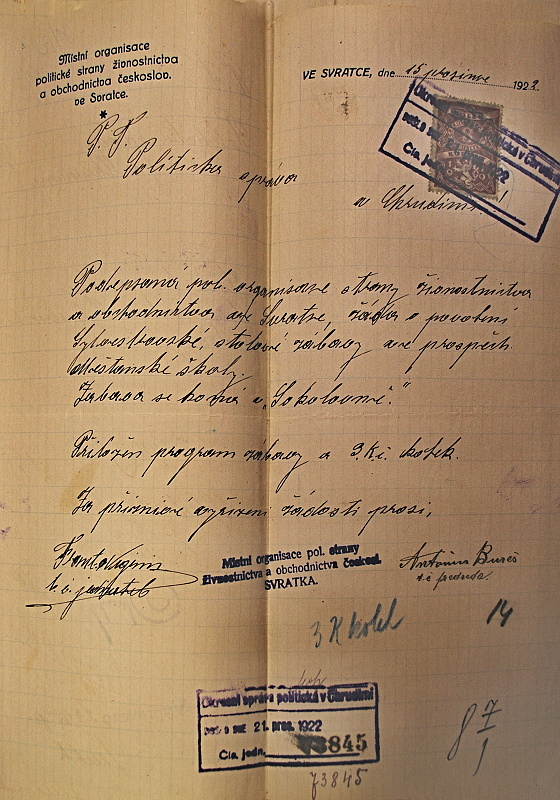 Místní organisace
politické strany živnostnictva
a obchodnictva českoslov.
ve Svratce.
*
VE SVRATCE, dne 15 prosince 1922.
P. T.
Politická správa
v Chrudimi.
Okresní správa politická v Chrudimi
1922
Čís. jedn.
Podepsaná pol. organisace strany živnostnictva
a obchodnictva ve Svratce, žádá o povolení
Sylvestrovské, stolové zábavy ve prospěch
Měšťanské školy.
Zábava se koná v „Sokolovně."
Přiložen program zábavy a 3. Kč. kolek.
Za příznivé vyřízení žádosti prosí,
t. č. jednatel
Místní organisace pol. strany
živnostnictva a obchodnictva českosl.
SVRATKA.
Antonín Bureš
t. č. předseda.
3 K kolek
14
Okresní správa politická v Chrudimi
došlo dne 21. pros. 1922
Čís. jedn. 73845
73845
8 7/1